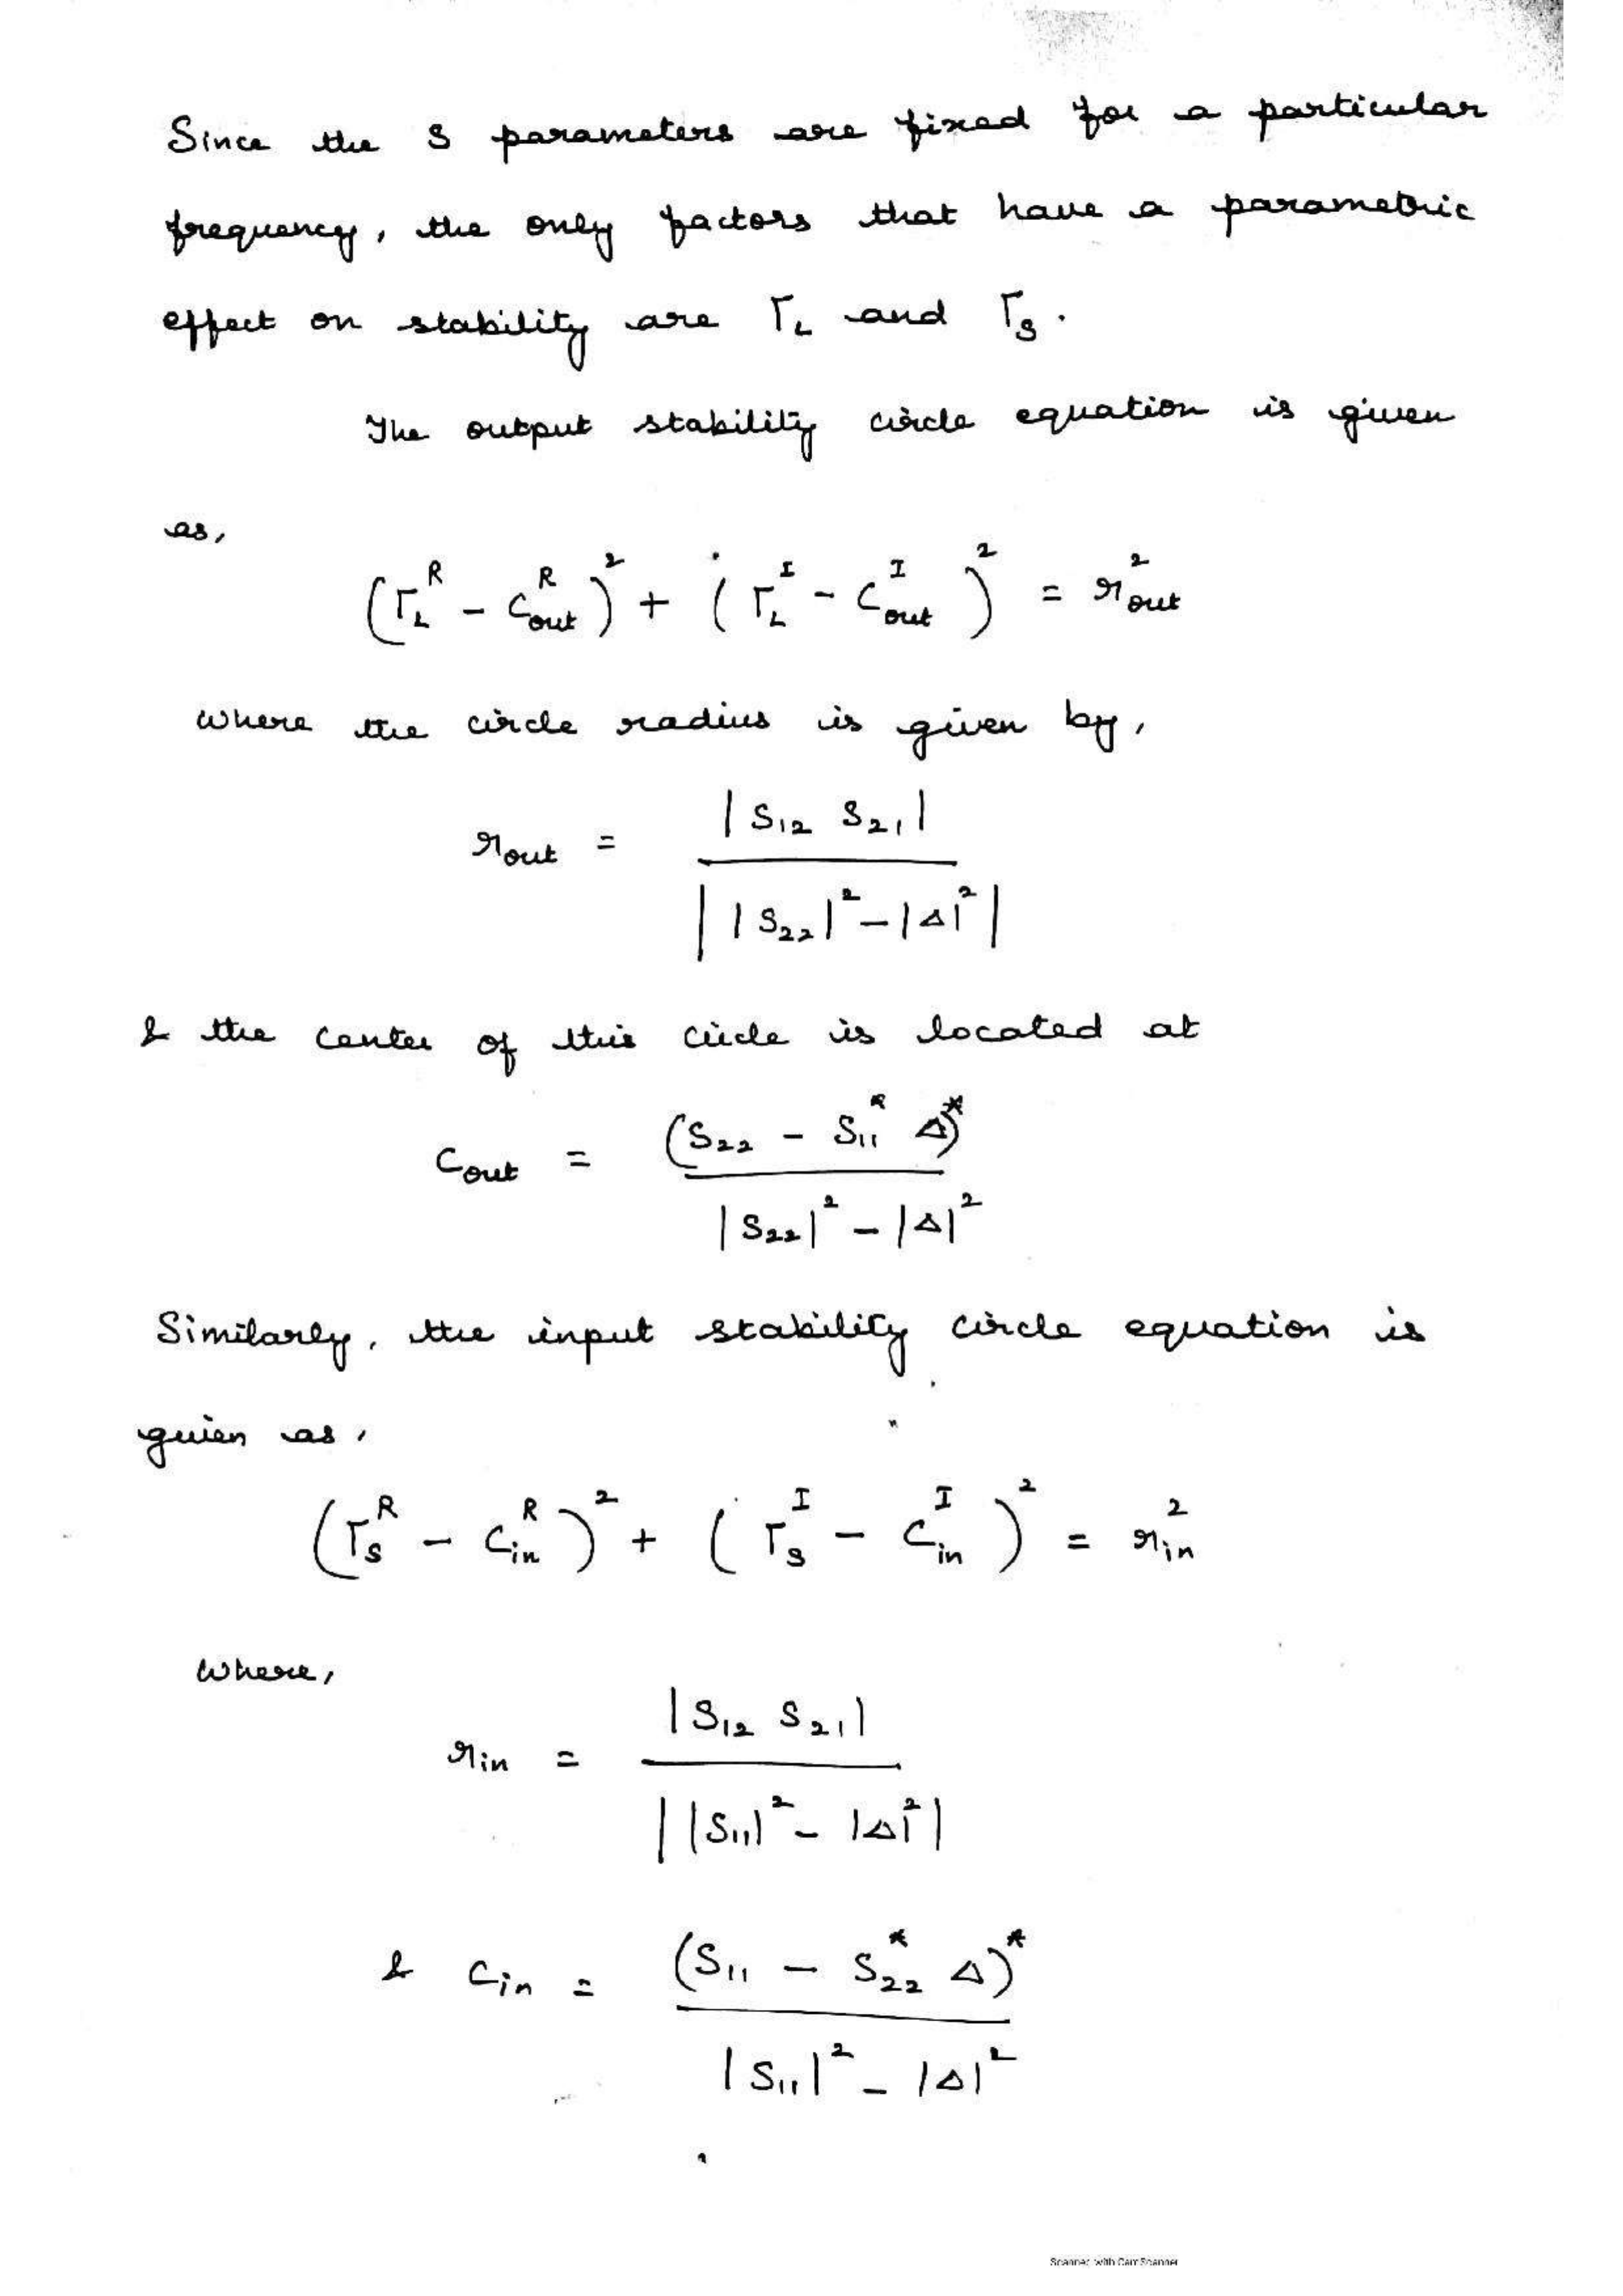 Since the S parameters are fixed for a particular
frequency, the only factors that have a parametric
effect on stability are Γ_L and Γ_S.
The output stability circle equation is given
as,
(Γ_L^R - C_out^R)^2 + (Γ_L^I - C_out^I)^2 = r_out^2
where the circle radius is given by,
r_out = |S_12 S_21| / ||S_22|^2 - |Δ|^2|
& the center of this circle is located at
C_out = (S_22 - S_11^* Δ)^* / |S_22|^2 - |Δ|^2
Similarly, the input stability circle equation is
given as,
(Γ_S^R - C_in^R)^2 + (Γ_S^I - C_in^I)^2 = r_in^2
where,
r_in = |S_12 S_21| / ||S_11|^2 - |Δ|^2|
& C_in = (S_11 - S_22^* Δ)^* / |S_11|^2 - |Δ|^2
Scanned with CamScanner